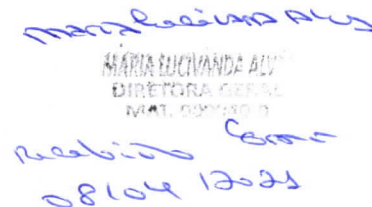 Maria Lucivanda Alves
MARIA LUCIVANDA ALV
DIRETORA GERAL
MAT.
Recebido
08/04/2021